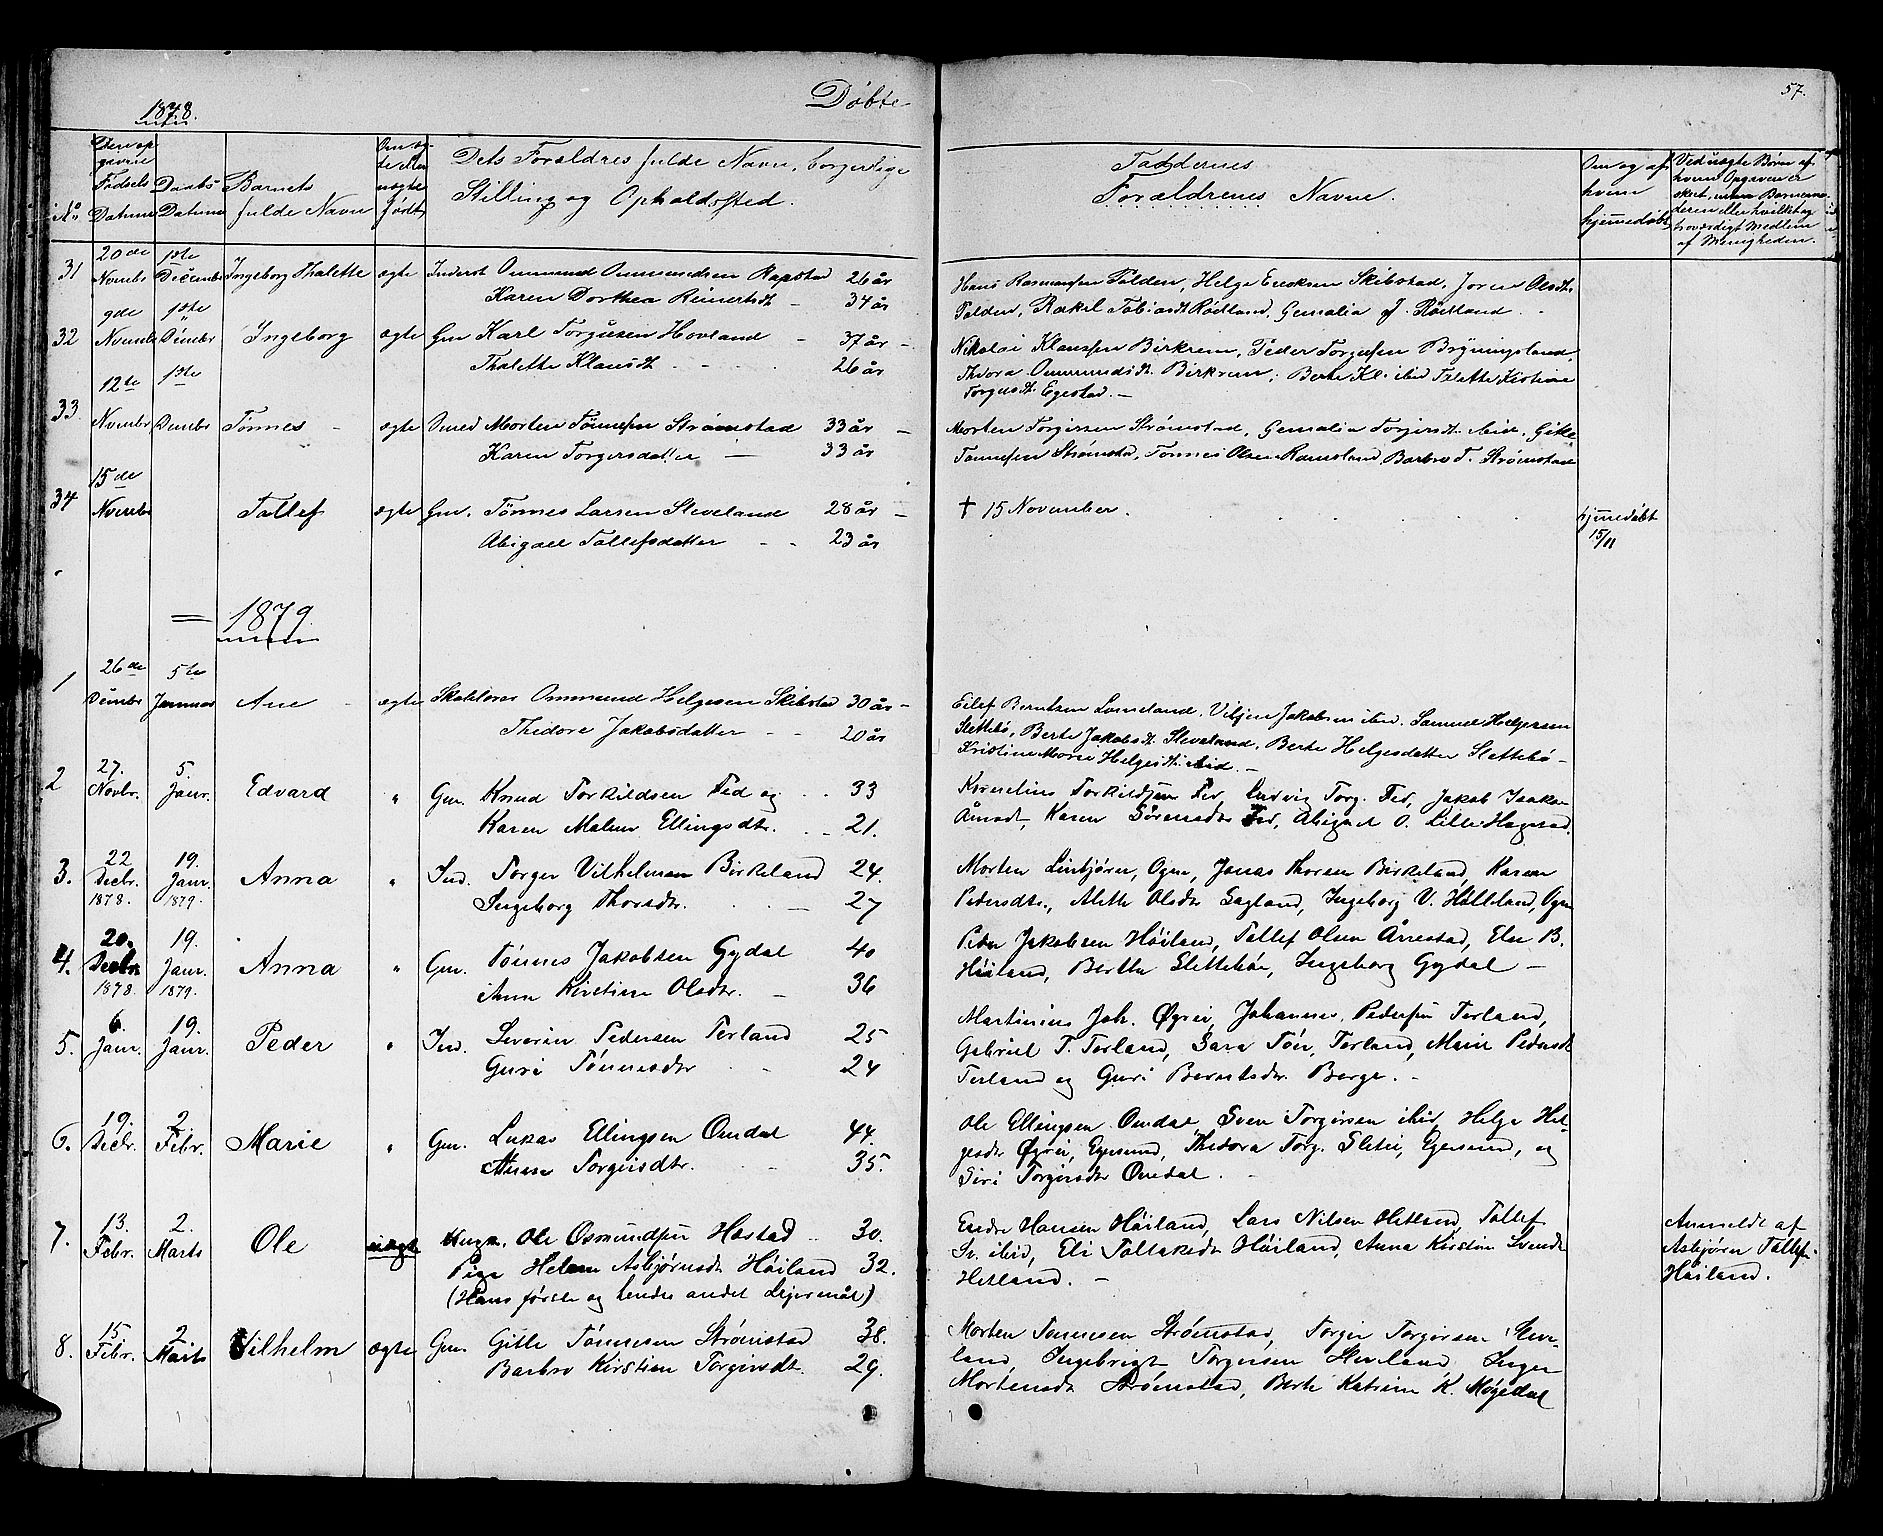 1878.
Døbte
57.
No.
Den opgavne Fødsels Datum
Daabs Datum
Barnets fulde Navn
Om ægte eller uægte født
Dets Forældres fulde Navn, borgerlige
Stilling og Opholdssted.
Faddernes
Forældrenes Navne.
Om og af hvem hjemmedøbt
Ved uægte Børn af
hvem Opgaven er
skeet, uden Barnemo-
deren eller hvilket og
troværdigt Medlem
af Menigheden.
31 20de Novembr 1ste Decembr Ingeborg Thalette ægte Inderst Ommund Ommundsen Rapstad 26 år
Karen Dorthea Reinertsdt - 34 år
Hans Rasmussen Tolden, Helge Eriksen Skibstad, Joren Olsdt.
Tolden, Rakel Tobiasdt Rødland, Gemalia J. Rødland.
32 9de Novembr 1ste Dcmbr Ingeborg ægte Gm Karl Torgersen Hovland - 37 år -
Thalette Klausdt - 26 år
Nikolai Klaussen Birkrem, Peder Torgersen Bryningsland,
Thedora Ommundsdt. Birkrem, Berte Kl. ibid Tolette Kistine
Torgersdt. Egestad. -
33 12te Novembr 1ste Dcmbr Tønnes - ægte Morten Tønnesen Strømstad 33 år -
Karen Torgersdatter - 33 år
Morten Torgersen Strømstad, Gemalia Torgersdt. ibid. Gitle
Tønnesen Strømstad, Tønnes Olsen Ramsland, Barbro T. Strømstad
34 15de Novembr Tollef ægte Gm. Tønnes Larsen Sleveland 28 år -
Abigael Tollefsdatter - - 23 år
† 15 November.
hjemmedøbt
15/11
= 1879.
1 26de Dcmbr 5te Januar Ane - ægte Skolelærer Ommund Helgesen Skibstad 30 år -
Thedore Jakobsdatter - - 20 år
Eilef Berntsen Lomeland, Viljen Jakobsen ibid. Samuel Helgesen
Slettebø, Berte Jakobsdt. Sleveland, Berte Helgesdatter Slettebø -
Kristine Marie Helgesdt. ibid. -
2 27. Novbr. 5. Janr. Edvard " Gm. Knud Torkildsen Fed og - - 33
Karen Malene Ellingsdtr. - - 21.
Kornelius Torkildsen Fed, Ludvig Torg. Fed, Jakob Isaksen
Åmodt, Karen Sørensdtr Fed, Abigael O. Lille Hagestad.
3. 22 Decbr. 1878. 19. Janr. 1879. Anna " Ind. Torger Vilhelmsen Birkeland 24.
Ingeborg Thorsdtr. - 27
Morten Linbjørn, Ogne, Jonas Thorsen Birkeland, Karen
Pedersdtr., Alette Olsdtr Sagland, Ingeborg V. Hålleland, Ogne
4. 20. Decbr 1878. 19. Janr. 1879. Anna " Gm. Tønnes Jakobsen Gydal 40
Anna Kirstine Olsdtr. - 36
Peder Jakobsen Høiland, Tollef Olsen Årrestad, Else B.
Høiland, Berthe Slettebøe, Ingeborg Gydal -
5. 6. Janr. 19. Janr. Peder " Ind. Severin Pedersen Terland 25
Guri Tønnesdtr - 24
Martinius Joh. Øgrei, Johannes Pedersen Terland,
Gabriel T. Terland, Sara Tøn. Terland, Marie Pedersdt
Terland og Guri Berntsdtr. Berge. -
6. 19. Decbr. 2 Febr. Marie " Gm. Lukas Ellingsen Omdal 44.
Anne Torgersdtr. - 35.
Ole Ellingsen Omdal, Sven Torgersen ibid, Helga Hel-
gesdtr Øgrei, Egersund, Thedora Torg. Sletei, Egersund, og
Siri Torgersdtr Omdal. -
7. 13. Febr. 2. Marts Ole uægte Ungk. Ole Osmundsen Hæstad - 30.
Pige Helene Asbjørnsdt Høiland 32.
(Hans første og hendes andet Leiermål)
Endre Hansen Høiland, Lars Nilsen Hetland, Tollef
Sv. ibid, Eli Tollaksdt Høiland, Anna Kirstine Svendt
Hetland. -
Anmeldt af
Asbjørn Tollefs.
Høiland.
8. 15. Febr. 2 Marts Vilhelm ægte Gm. Gitle Tønnesen Strømstad 38.
Barbro Kirstine Torgersdt. 29.
Morten Tønnesen Strømstad, Torger Torgersen Sleve-
land, Ingebrigt Torgersen Sleveland, Inger
Mortensdt Strømstad, Berte Katrine K. Møgedal